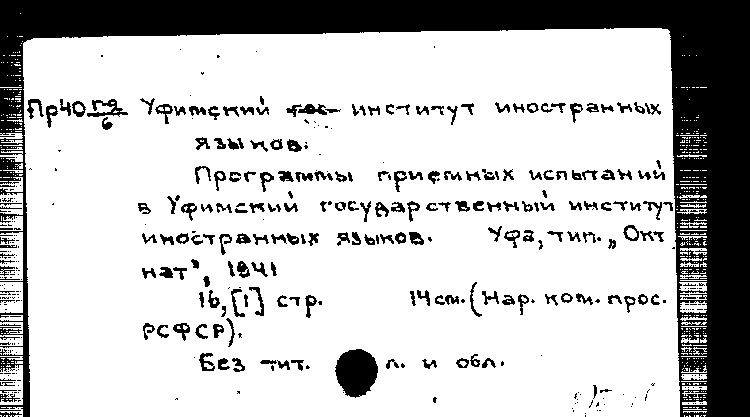 Пр40 гя/6 Уфимский гос институт иностранных
языков.
Программы приемных испытаний
в Уфимский государственный институт
иностранных языков. Уфа, тип. „Окт
нат", 1941
16, [1] стр. 14 см. (Нар. ком. прос.
РСФСР).
Без тит. л. и обл.